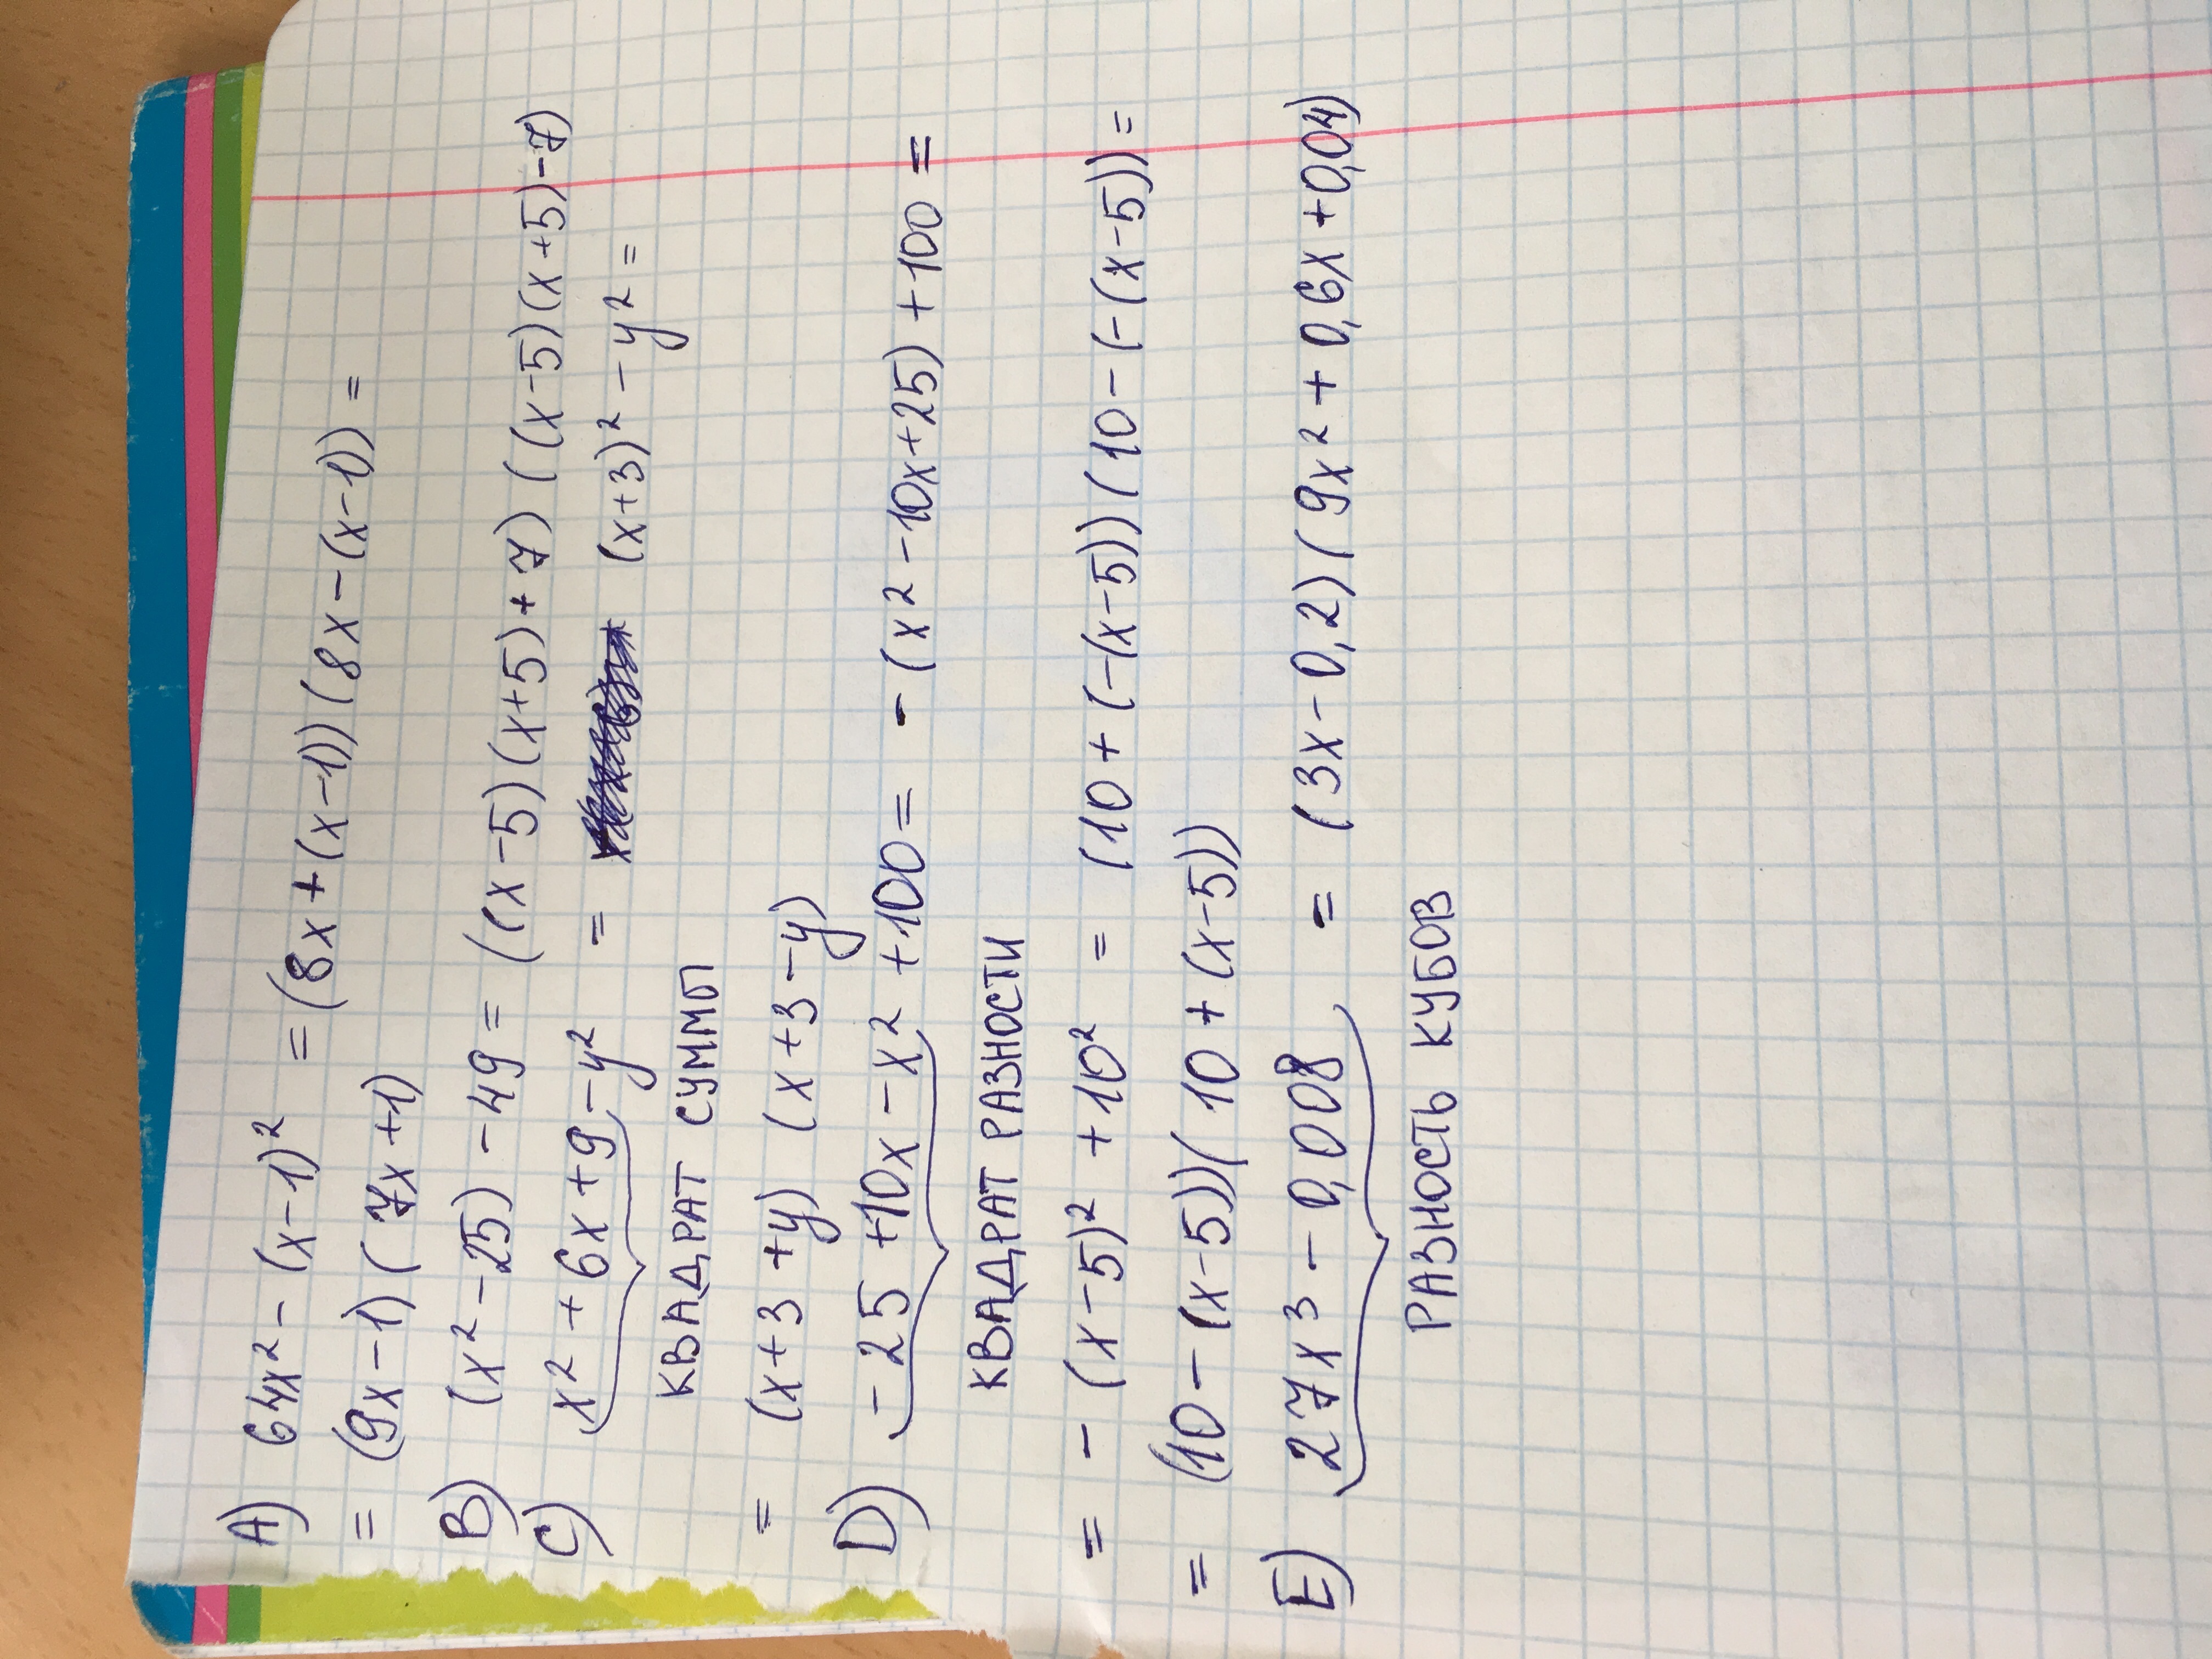 A) 64x² - (x-1)² = (8x+(x-1))(8x-(x-1)) =
= (9x-1)(7x+1)
B) (x²-25) - 49 = ((x-5)(x+5)+7)((x-5)(x+5)-7)
C) x²+6x+9-y² = (x+3)² - y² =
КВАДРАТ СУММЫ
= (x+3+y) (x+3-y)
D) -25+10x-x²+100 = -(x2-10x+25)+100 =
КВАДРАТ РАЗНОСТИ
= -(x-5)²+10² = (10+(-(x-5))(10-(-(x-5)) =
= (10-(x-5))(10+(x-5))
E) 27x³-0,008 = (3x-0,2)(9x²+0,6x+0,04)
РАЗНОСТЬ КУБОВ